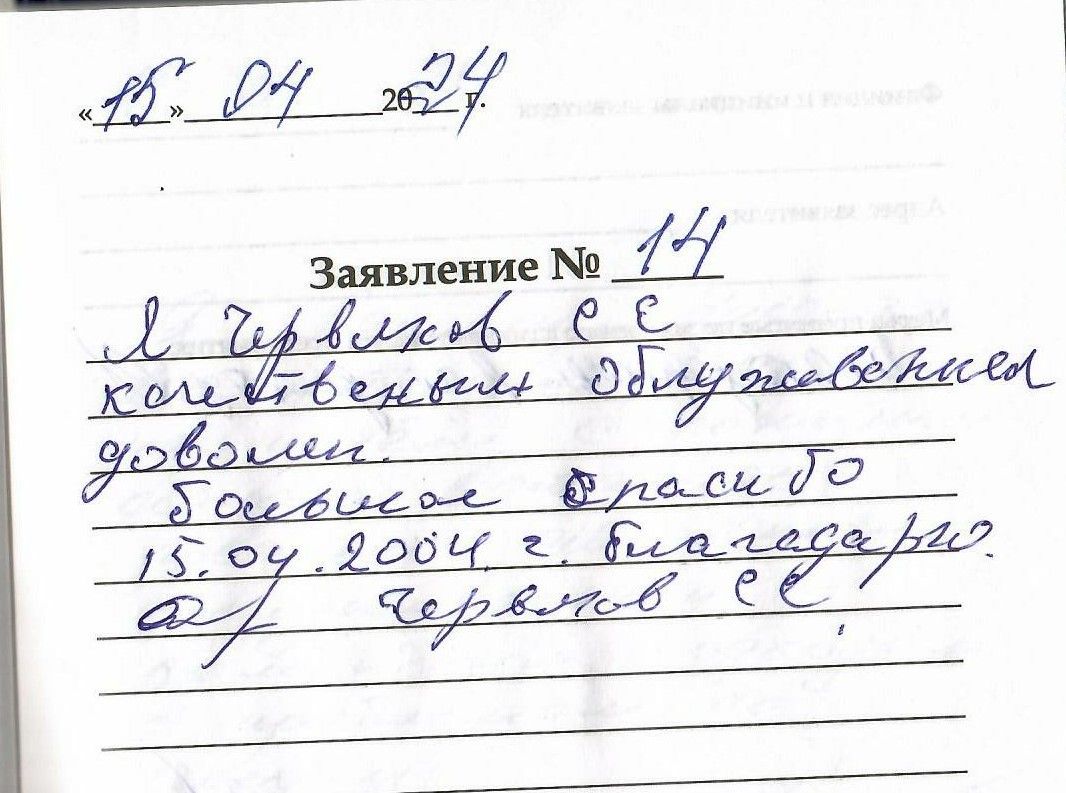 «15» 04 2024 г.
Заявление № 14
Я Червяков С Е
качественым облужевением
доволен.
большое спасибо
15.04.2004. г. благадарю.
Червяков С Е